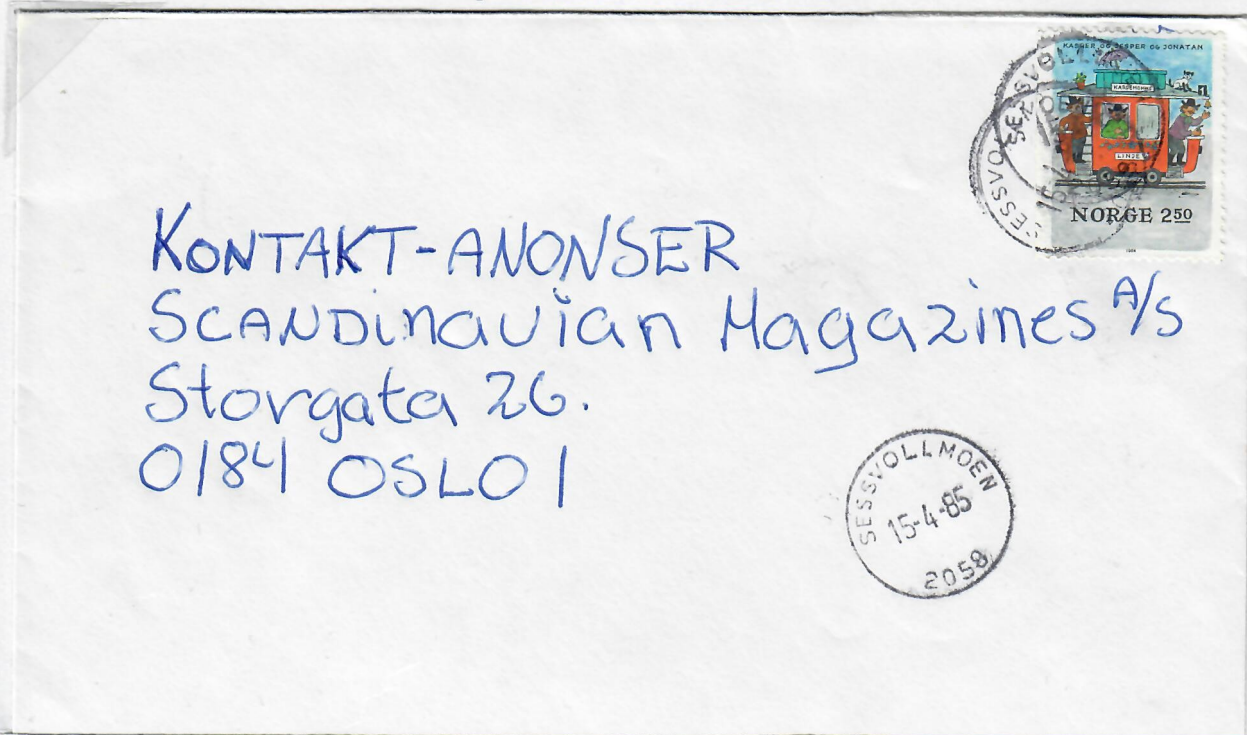 KASPER OG JESPER OG JONATAN
KARDEMOMME
LINJE
NORGE 250
KONTAKT-ANONSER
SCANDinavian Magazines A/S
Storgata 26.
0184 OSLO 1
SESSVOLLMOEN
15-4-85
2058